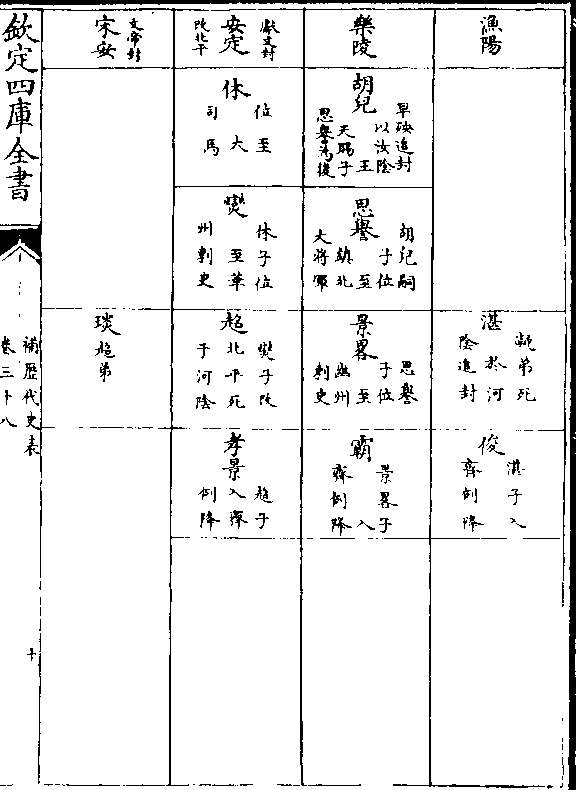 漁陽
湛
甄弟死
於河
陰追封
俊
湛子入
齊例降
樂陵
胡兒
早殀追封
以汝陰
王
天賜子
思譽為後
思譽
胡兒嗣
子位至
鎮北
大將軍
景略
思譽
子位至
幽州
刺史
霸
景略子
入
齊例降
安定
獻文封
改北平
休
位至
大
司馬
燮
休子位
至華
州刺史
超
燮子改
北平死
于河陰
孝景
超子
入齊
例降
宋安
文帝封
琰
超弟
欽定四庫全書
補歷代史表
卷三十八
十